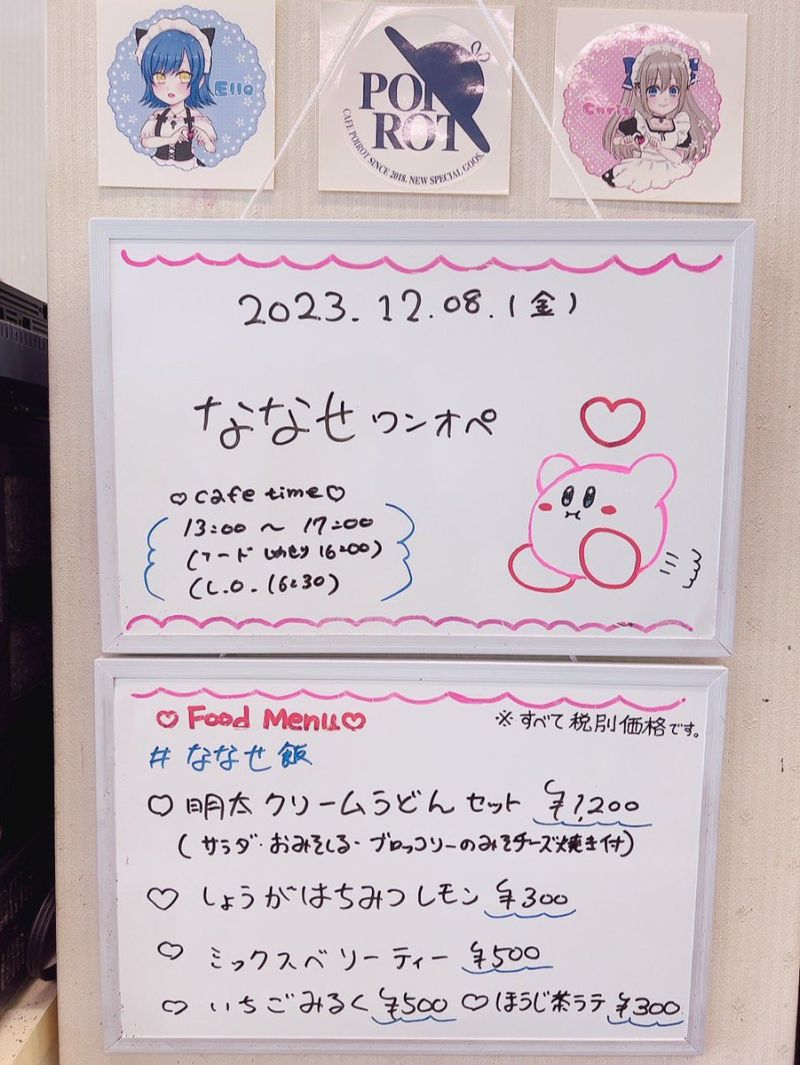 Ella
POIROT
CAFE POIROT SINCE 2018. NEW SPECIAL GOOS.
2023.12.08.(金)
ななせ ワンオペ
♡ cafe time ♡
13:00 〜 17:00
(フード しめきり 16:00)
(L.O. 16:30)
♡ Food Menu ♡
※すべて税別価格です。
#ななせ飯
♡ 明太クリームうどんセット ¥1,200
(サラダ・おみそしる・ブロッコリーのみそチーズ焼き付)
♡ しょうがはちみつレモン ¥300
♡ ミックスベリーティー ¥500
♡ いちごみるく ¥500 ♡ ほうじ茶ラテ ¥300